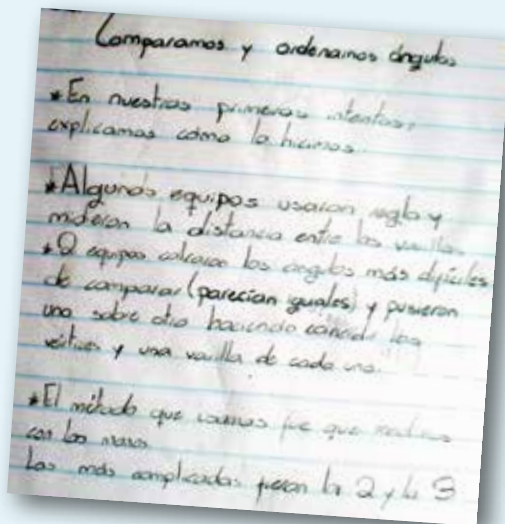 Comparamos y ordenamos ángulos
*En nuestros primeros intentos,
explicamos cómo lo hicimos.
*Algunos equipos usaron regla y
midieron la distancia entre las varillas.
*2 equipos calcaron los ángulos más difíciles
de comparar (parecían iguales) y pusieron
uno sobre otro haciendo coincidir los
vértices y una varilla de cada uno.
*El método que usamos fue que medimos
con las manos
Los más complicados fueron la 2 y la 3